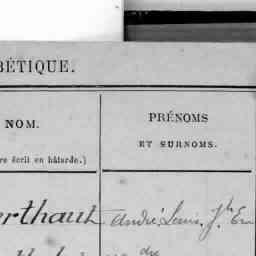 BÉTIQUE.
NOM.
re écrit en bâtarde.)
PRÉNOMS
ET SURNOMS.
erthaut André Louis, Jh